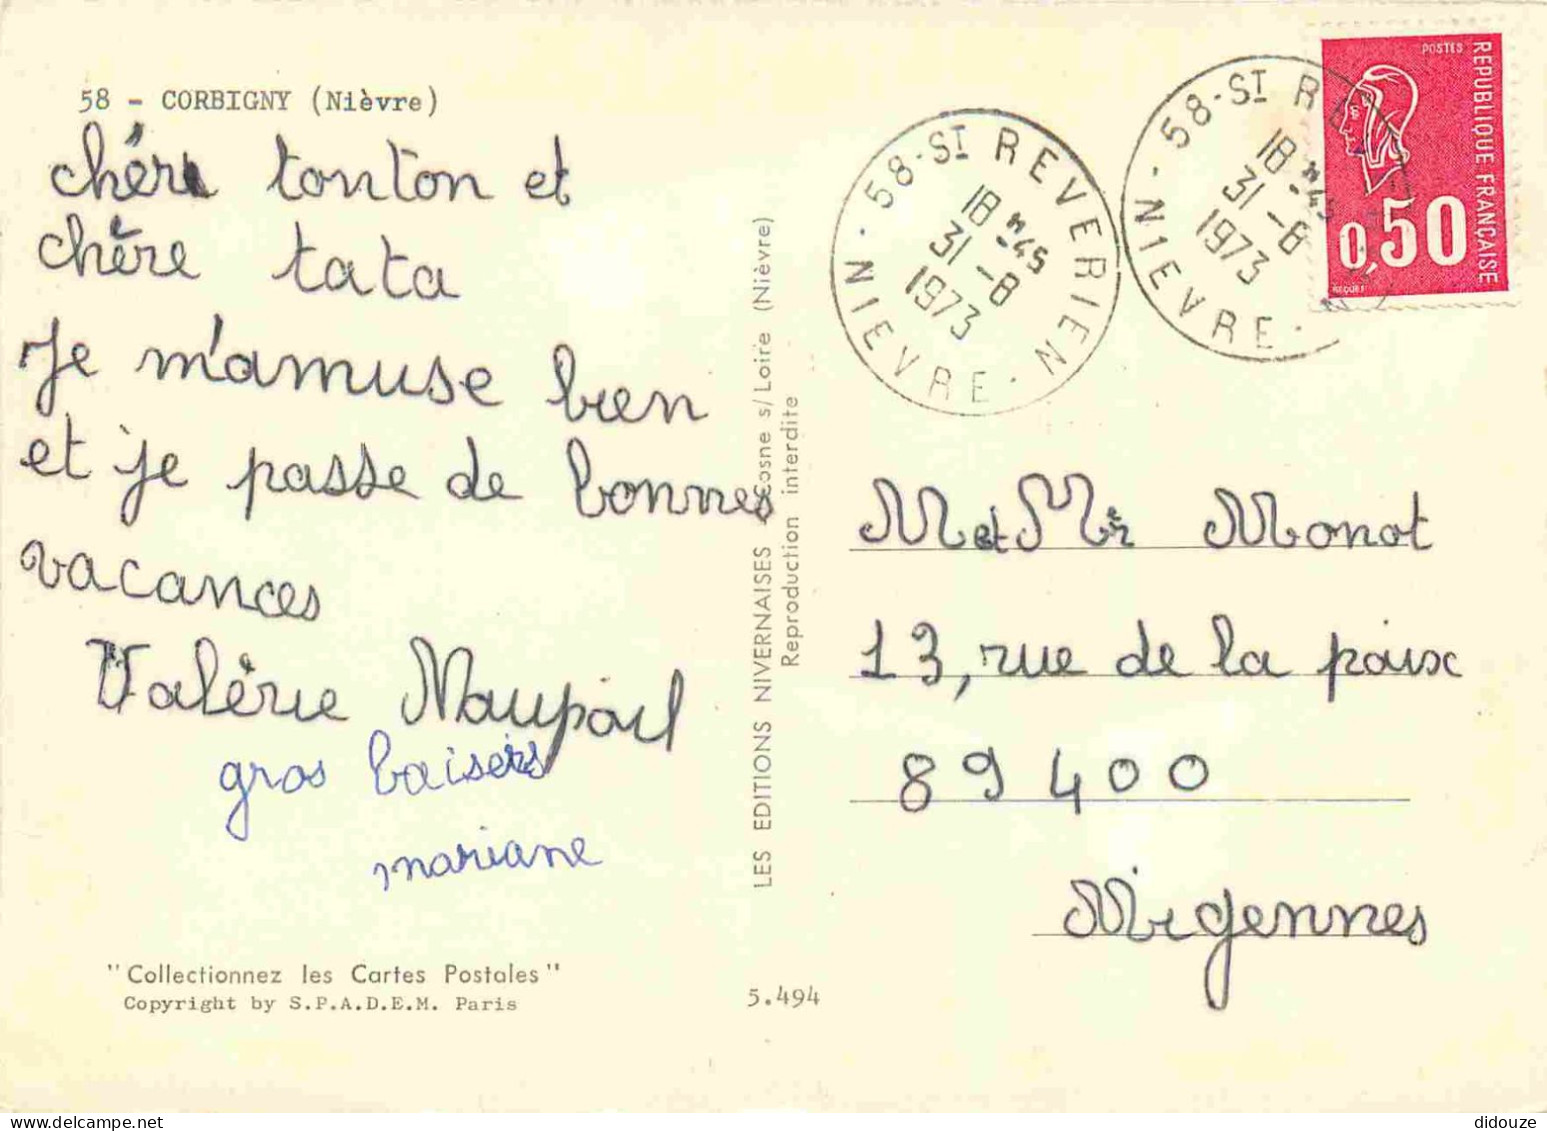 58 - CORBIGNY (Nièvre)
chère tonton et
chère tata
Je m'amuse bien
et je passe de bonnes
vacances
Valérie Maupoil
gros baisers
mariane
"Collectionnez les Cartes Postales"
Copyright by S.P.A.D.E.M. Paris
5.494
LES EDITIONS NIVERNAISES Cosne s/Loire (Nièvre)
Reproduction interdite
58-St REVERIEN
18 H -45
31 -8
1973
NIEVRE
58-St RE
18 H -45
31 -8
1973
NIEVRE
POSTES
REPUBLIQUE FRANÇAISE
0,50
BEQUET
M et Mr Monot
13, rue de la paix
89400
Migennes
didouze